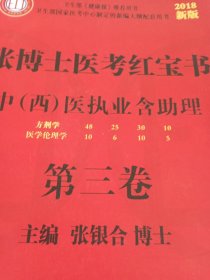 卫生部《健康报》推荐用书
卫生部国家医考中心制定的新编大纲配套用书
2018
新版
张博士医考红宝书
中(西)医执业含助理
方剂学 48 25 30 10
医学伦理学 10 6 10 5
第三卷
主编 张银合 博士